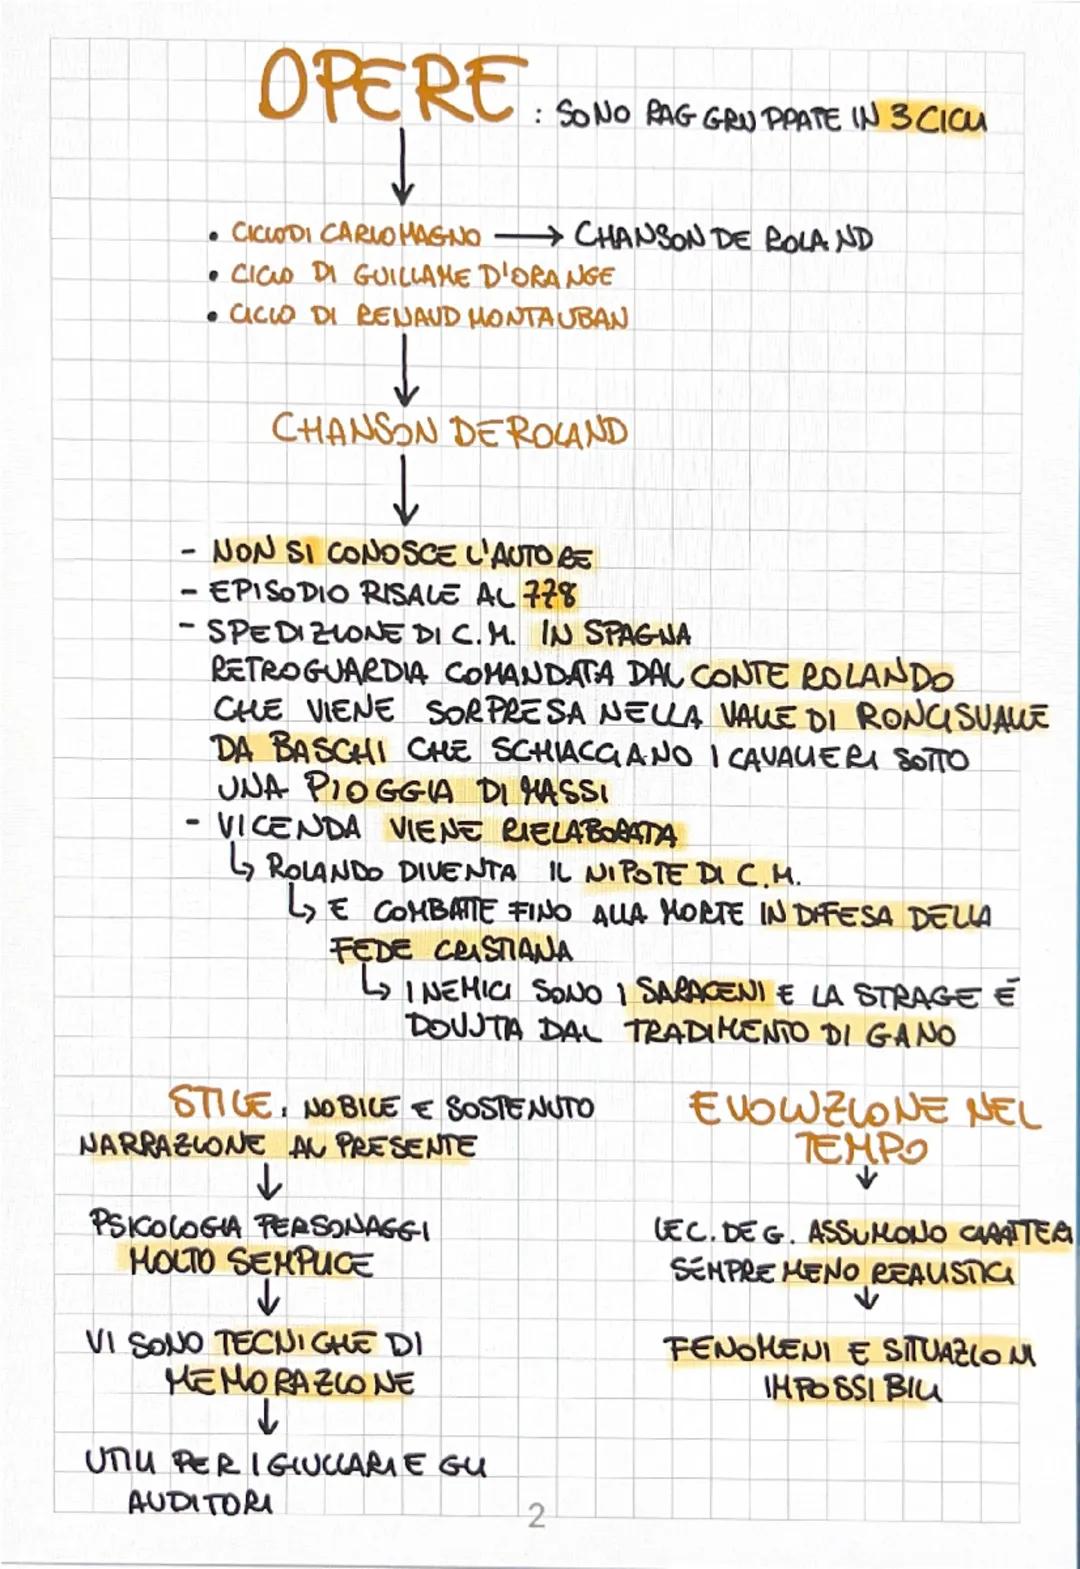 OPERE : SONO RAGGRUPPATE IN 3 CICLI
• CICLO DI CARLO MAGNO → CHANSON DE ROLAND
• CICLO DI GUILLAME D'ORANGE
• CICLO DI RENAUD MONTAUBAN
CHANSON DE ROLAND
- NON SI CONOSCE L'AUTORE
- EPISODIO RISALE AL 778
- SPEDIZIONE DI C.M. IN SPAGNA
RETROGUARDIA COMANDATA DAL CONTE ROLANDO
CHE VIENE SORPRESA NELLA VALLE DI RONCISVALLE
DA BASCHI CHE SCHIACCIANO I CAVALIERI SOTTO
UNA PIOGGIA DI MASSI
- VICENDA VIENE RIELABORATA
↳ ROLANDO DIVENTA IL NIPOTE DI C.M.
↳ E COMBATTE FINO ALLA MORTE IN DIFESA DELLA
FEDE CRISTIANA
↳ I NEMICI SONO I SARACENI E LA STRAGE È
DOVUTA DAL TRADIMENTO DI GANO
STILE: NOBILE E SOSTENUTO
NARRAZIONE AL PRESENTE
PSICOLOGIA PERSONAGGI
MOLTO SEMPLICE
VI SONO TECNICHE DI
MEMORAZIONE
UTILI PER I GIULLARI E GLI
AUDITORI
EVOLUZIONE NEL
TEMPO
LE C. DE G. ASSUMONO CARATTERI
SEMPRE MENO REALISTICI
FENOMENI E SITUAZIONI
IMPOSSIBILI
2